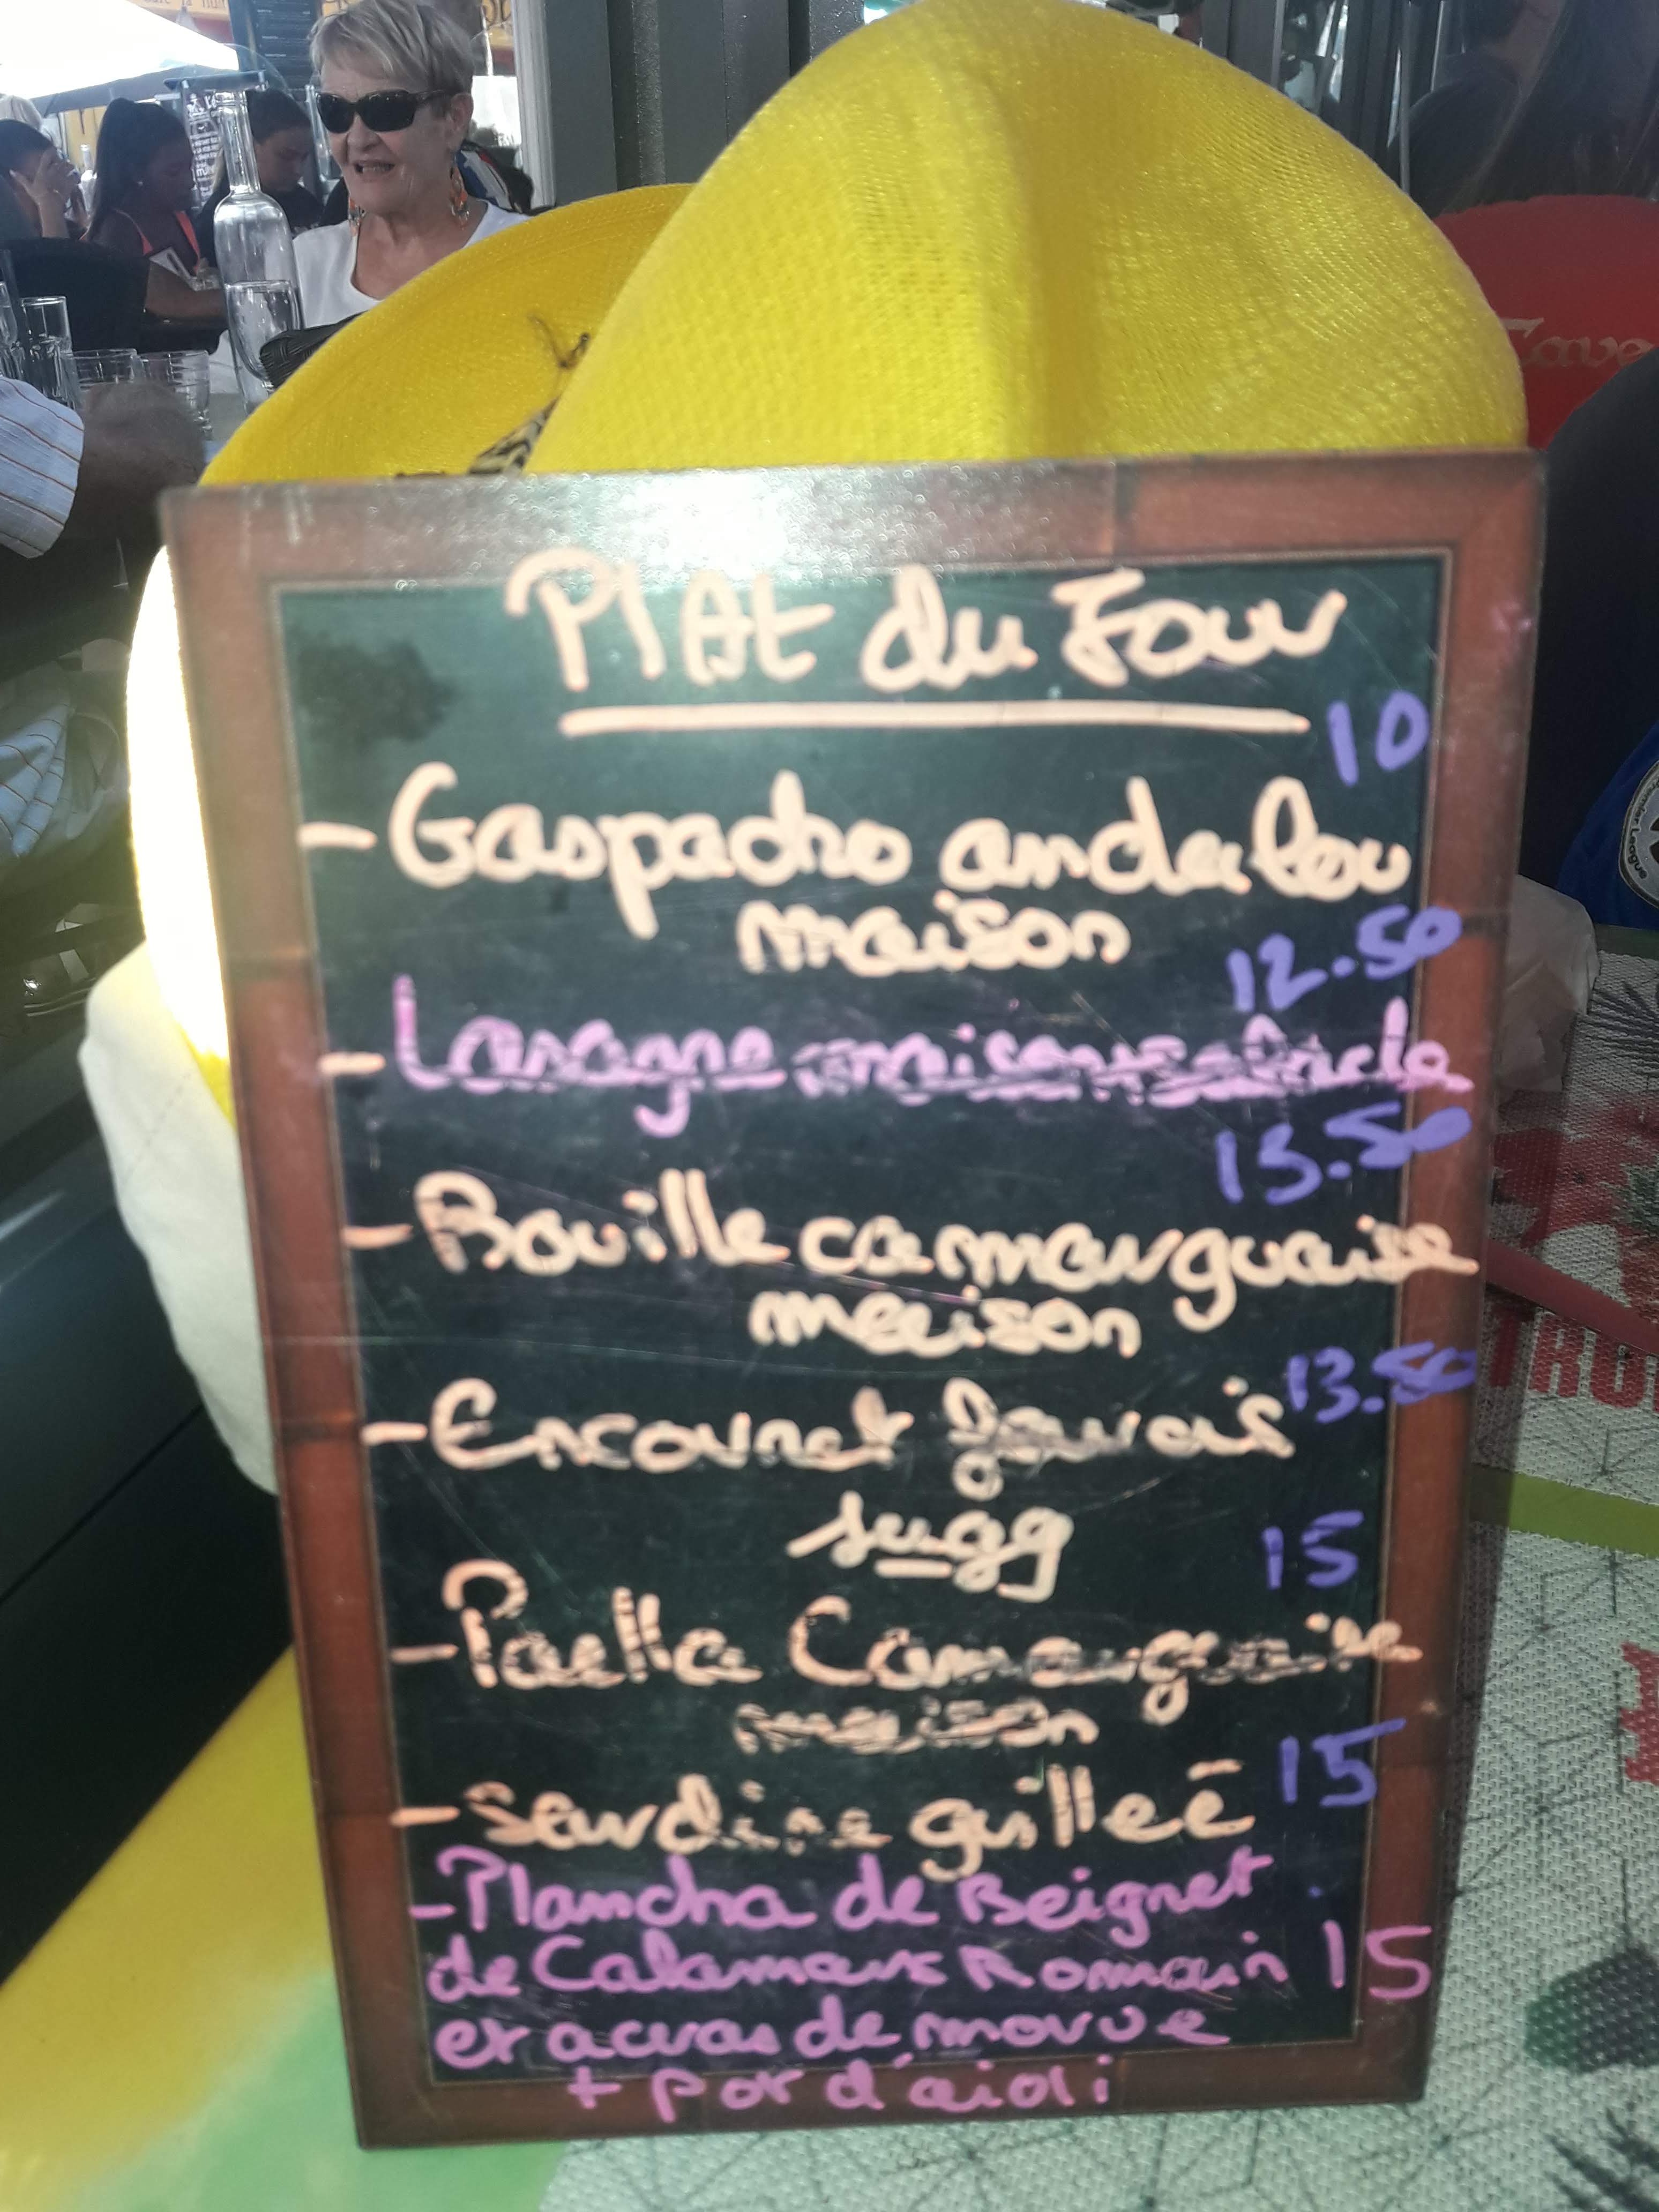 Plat du Jour
10
- Gaspacho andalou
maison
12.50
- Lasagne maison salade
13.50
- Rouille camarguaise
maison
- Encornet farcis 13.50
15
- Paella Camarguaise
maison
15
- Sardine grilleé
- Plancha de Beignet
de Calamars Romain 15
et acras de morue
+ pot d'aioli
Tave
TRO